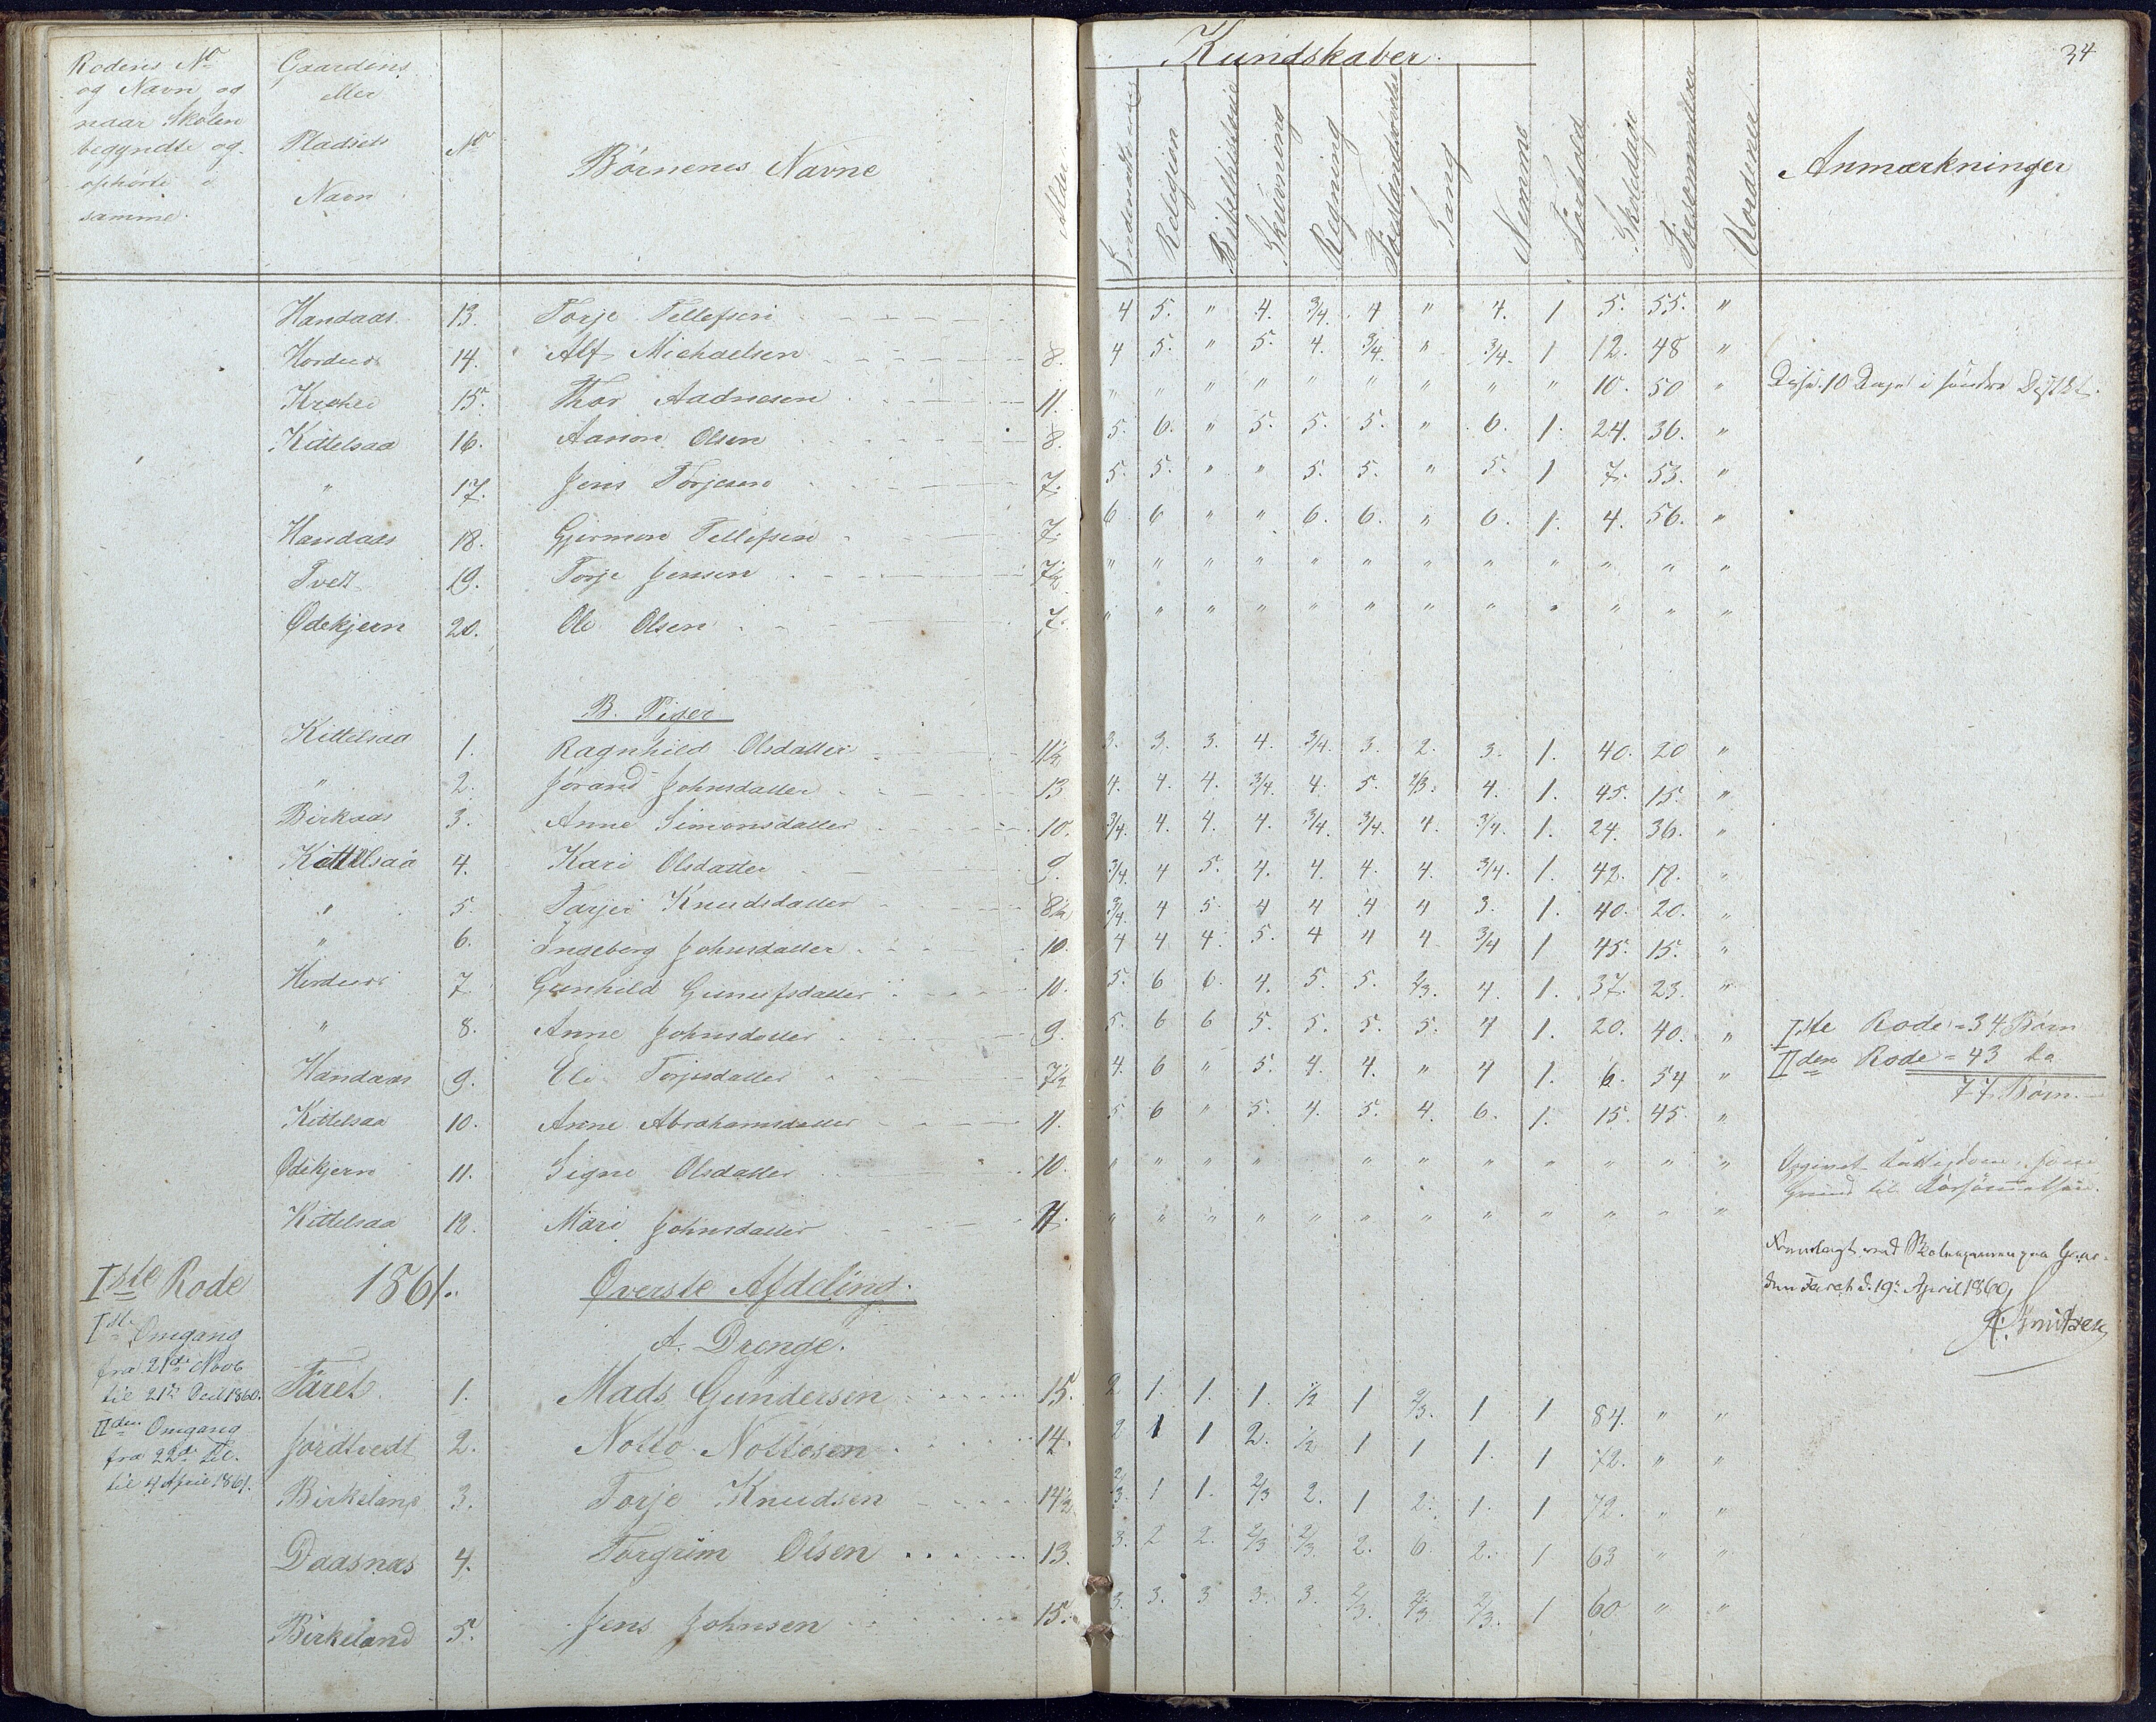 34
Rodens No og Navn og naar Skolen begyndte og ophørte samme.
Gaardens eller Pladsets Navn
No
Børnenes Navne
Alder
Kundskaber.
Religion
Bibelhistorie
Skrivning
Regning
Forstandsøvelse
Sang
Nemme
Forhold
Skoledage
Forsømmelser
Anmærkninger
Handaas 13. Torje Tellefsen 4 5. " 4. 3/4. 4 " 4. 1 5. 55. "
14. Alf Michaelsen 8. 4 5. " 5. 4. 3/4. " 3/4. 1 12. 48 "
15. Thor Aadnesen 11. " " " " " " " " " 10. 50 "
Kittelsaa 16. Aanon Olsen 8. 5. 6. " 5. 5. 5. " 6. 1. 24. 36. "
" 17. Jens Torjesen 7. 5. 5. " " 5. 5. " 5. 1 7. 53. "
Handaas 18. Gjermon Tellefsen 7. 6 6 " " 6. 6. " 6. 1. 4. 56. "
Tvedt 19. Torje Jensen 7½ " " " " " " " " " " " "
Ødekjern 20. Ole Olsen 7. " " " " " " " " " " " "
B. Piger
Kittelsaa 1. Ragnhild Olsdatter 11½ 3. 3. 3. 4. 3/4. 3. 2. 3. 1. 40. 20 "
" 2. Jørand Johnsdatter 13 4. 4. 4. 3/4. 4. 5. 2/3. 4. 1. 45. 15. "
Birkaas 3. Anne Simonsdatter 10. 3/4. 4. 4. 4. 3/4. 3/4. 4. 3/4. 1. 24. 36. "
Kittelsaa 4. Kari Olsdatter 9. 3/4. 4 5. 4. 4. 4. 4. 3/4. 1. 42. 18. "
" 5. Tarjer Knudsdatter 8½ 3/4. 4 5. 4 4 4 4 3. 1. 40. 20. "
" 6. Ingeborg Johnsdatter 10. 4 4 4. 5. 4 4 4 3/4 1 45. 15. "
7 Gunhild Gunufsdatter 10. 5. 6 6. 4. 5. 5. 2/3. 4. 1. 37. 23. "
" 8. Anne Johnsdatter 9. 5. 6 6 5. 5. 5. 5. 4 1. 20. 40. "
Iste Rode = 34 Børn
Handaas 9. Eli Torjesdatter 7½ 4. 6 " 5. 4. 4. " 4 1. 6. 54 "
IIden Rode = 43 do
77 Børn.
Kittelsaa 10. Anne Abrahamsdatter 11. 5. 6 " 5. 4. 5. 4. 6. 1. 15. 45. "
Ødekjern 11. Signe Olsdatter 10. " " " " " " " " " " "
Opgivet Fattigdom som Grund til Forsømmelsen.
Kittelsaa 12. Mari Johnsdatter 11. " " " " " " " " " " " "
Fremlagt ved Skoleexamen paa Gaarden Faret d. 19. April 1860,
Iste Rode 1861. Øverste Afdeling.
A. Drenge.
Iste Omgang
fra 21de Novb
til 21de Decb 1860.
IIden Omgang
fra 22de
til 4 April 1861.
Faret 1. Mads Gundersen 15. 2 1. 1. 1. 1/2 1 2/3. 1 1 84. " "
Jordtvedt 2. Notto Nottosen 14. 2 1 1 2. 1/2 1 1 1. 1 72. " "
Birkeland 3. Torje Knudsen 14½ 2/3. 1 1. 2/3 2. 1 2. 1. 1 72. " "
Daasnæs 4. Torgrim Olsen 13. 3. 2 2. 2/3 2/3. 2. 6. 2. 1 63 " "
Birkeland 5. Jens Johnsen 15. 3. 3. 3 3. 3. 2/3. 2/3. 2/3. 1 60 " "